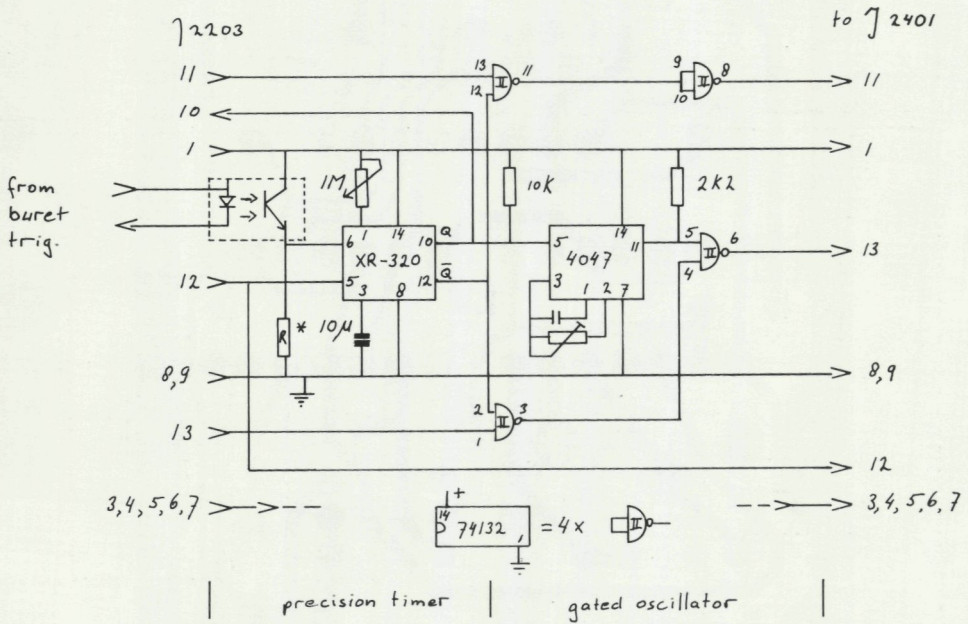 J2203
to J 2401
11
13
12
II
11
9
10
II
8
11
10
1
1
from
buret
trig.
1M
10K
2K2
6
1
14
10
Q
XR-320
5
3
8
12
Q̅
5
14
11
4047
3
1
2
7
5
4
II
6
13
12
R
* 10μ
8,9
8,9
2
1
II
3
13
12
3,4,5,6,7
3,4,5,6,7
14
+
74132
= 4x
II
precision timer
gated oscillator